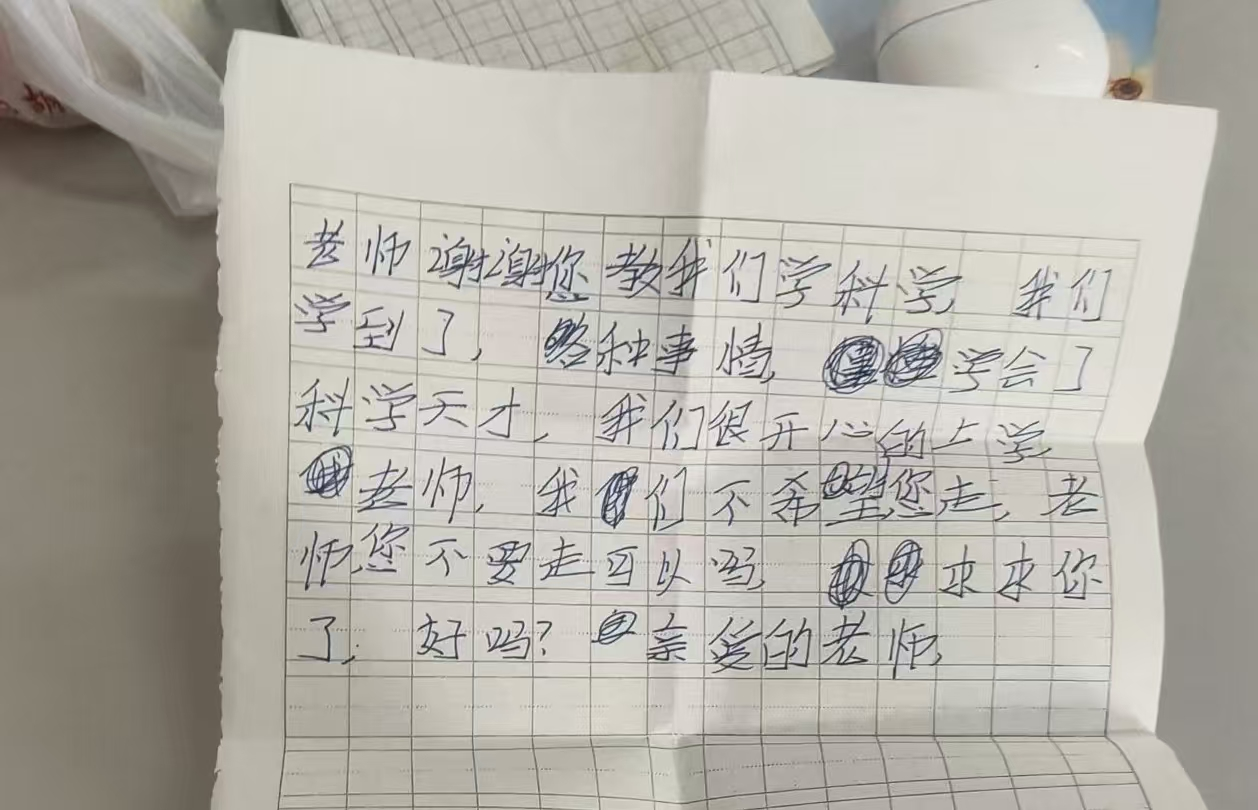 老师谢谢您教我们学科学, 我们
学到了, 各种事情, 学会了
科学天才, 我们很开心的上学,
老师, 我们不希望您走, 老
师,您不要走可以吗, 求求你
了, 好吗? 亲爱的老师,